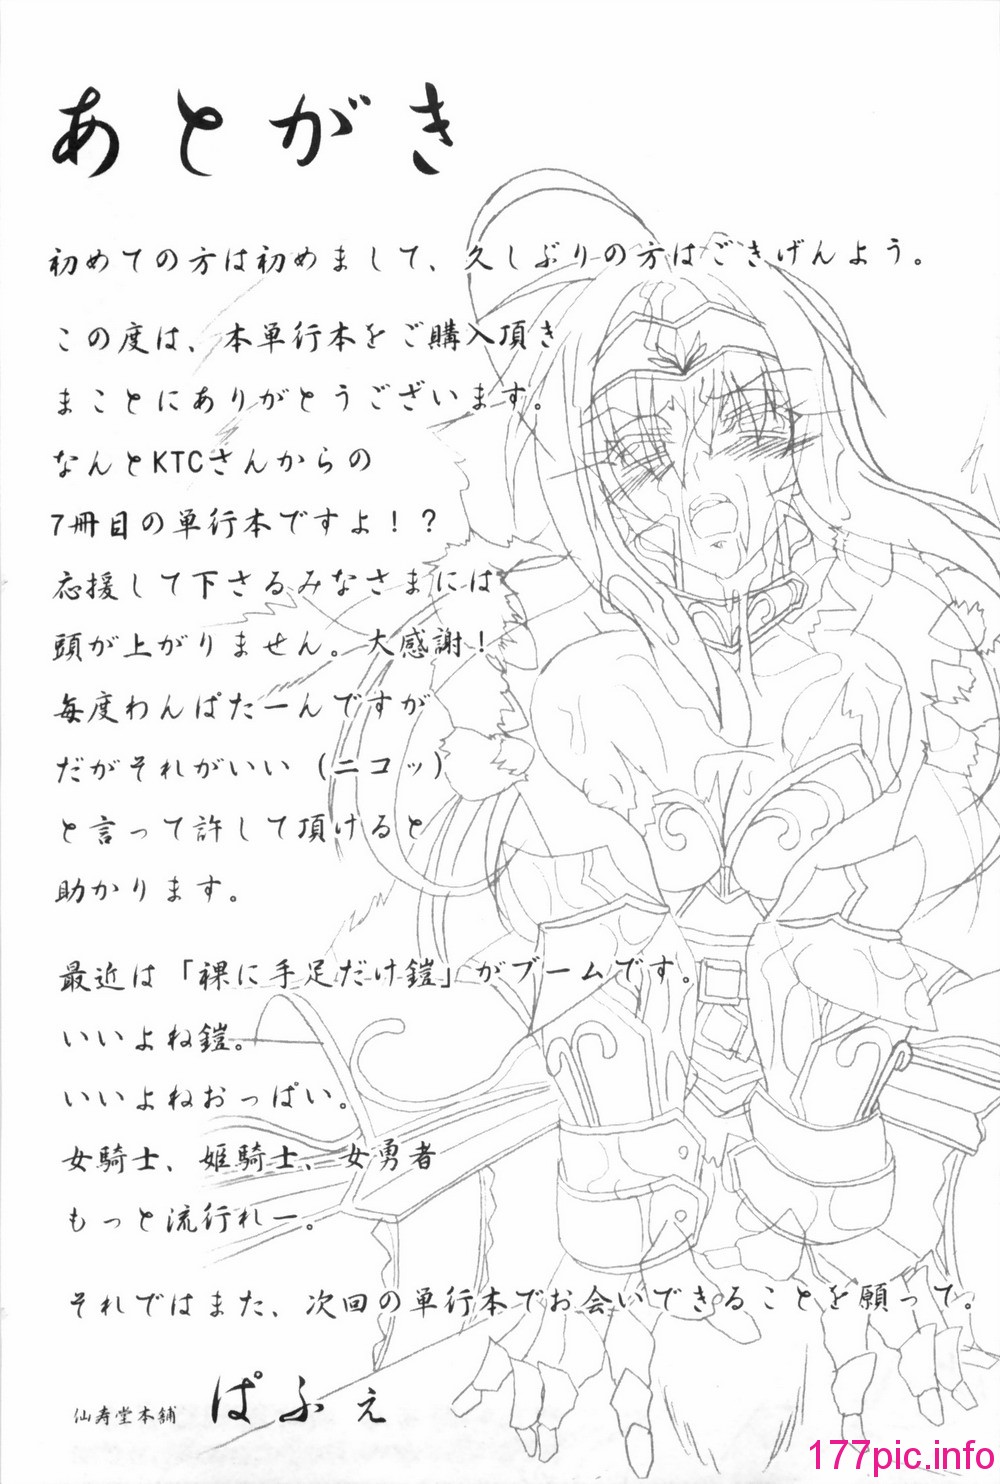 あとがき
初めての方は初めまして、久しぶりの方はごきげんよう。
この度は、本単行本をご購入頂き
まことにありがとうございます。
なんとKTCさんからの
7冊目の単行本ですよ！？
応援して下さるみなさまには
頭が上がりません。大感謝！
毎度わんぱたーんですが
だがそれがいい（ニコッ）
と言って許して頂けると
助かります。
最近は「裸に手足だけ鎧」がブームです。
いいよね鎧。
いいよねおっぱい。
女騎士、姫騎士、女勇者
もっと流行れー。
それではまた、次回の単行本でお会いできることを願って。
仙寿堂本舗 ぱふぇ
177pic.info